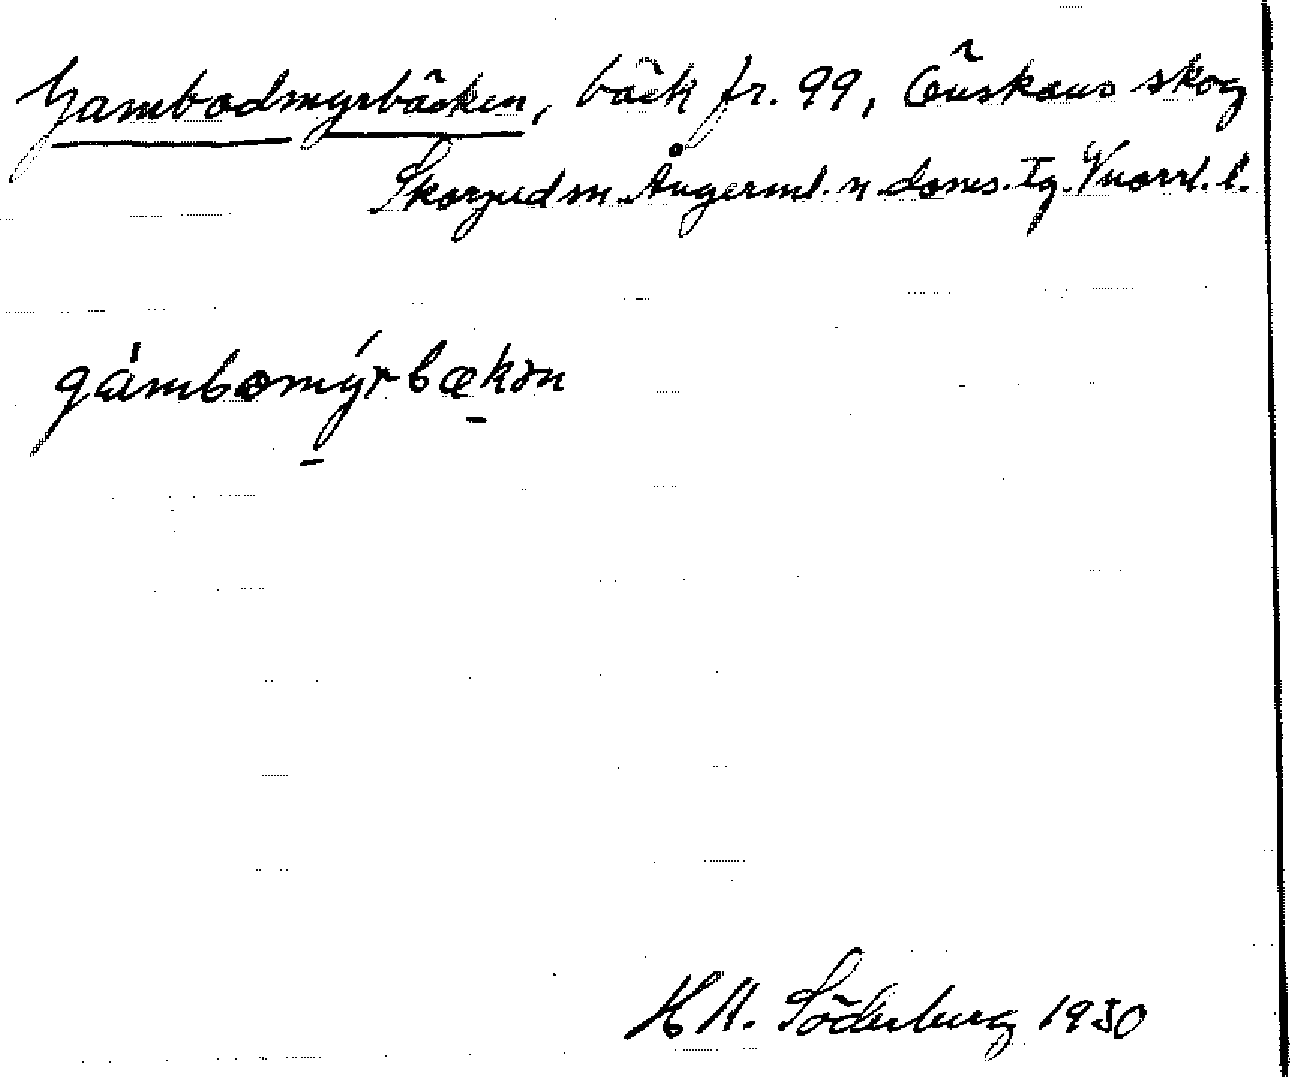 Gambodmyrbäcken, bäck fr. 99, Önskans skog
Skorped sn. Ångerml. n. doms. Tg. Vnorrl. l.
gámbomýrbækən
H A. Söderberg 1930